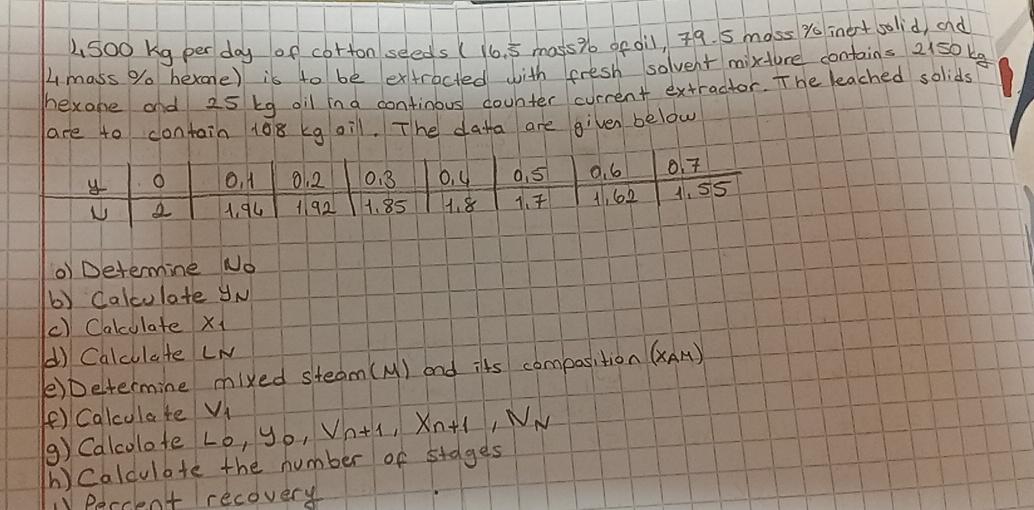 4500 kg per day of cotton seeds (16,5 mass% of oil, 79.5 mass % inert solid, and
4 mass % hexane) is to be extracted with fresh solvent mixture contains 2150 kg
hexane and 25 kg oil in a continous counter current extractor. The leached solids
are to contain 108 kg oil. The data are given below
y 0 0,1 0.2 0.3 0.4 0.5 0.6 0.7
N 2 1,94 1,92 1.85 1.8 1.7 1,62 1.55
a) Determine No
b) Calculate yN
c) Calculate X1
d) Calculate LN
e) Determine mixed steam (M) and its composition (XAM)
f) Calculate V1
g) Calculate Lo, yo, Vn+1, Xn+1, NN
h) Calculate the number of stages
i) Percent recovery